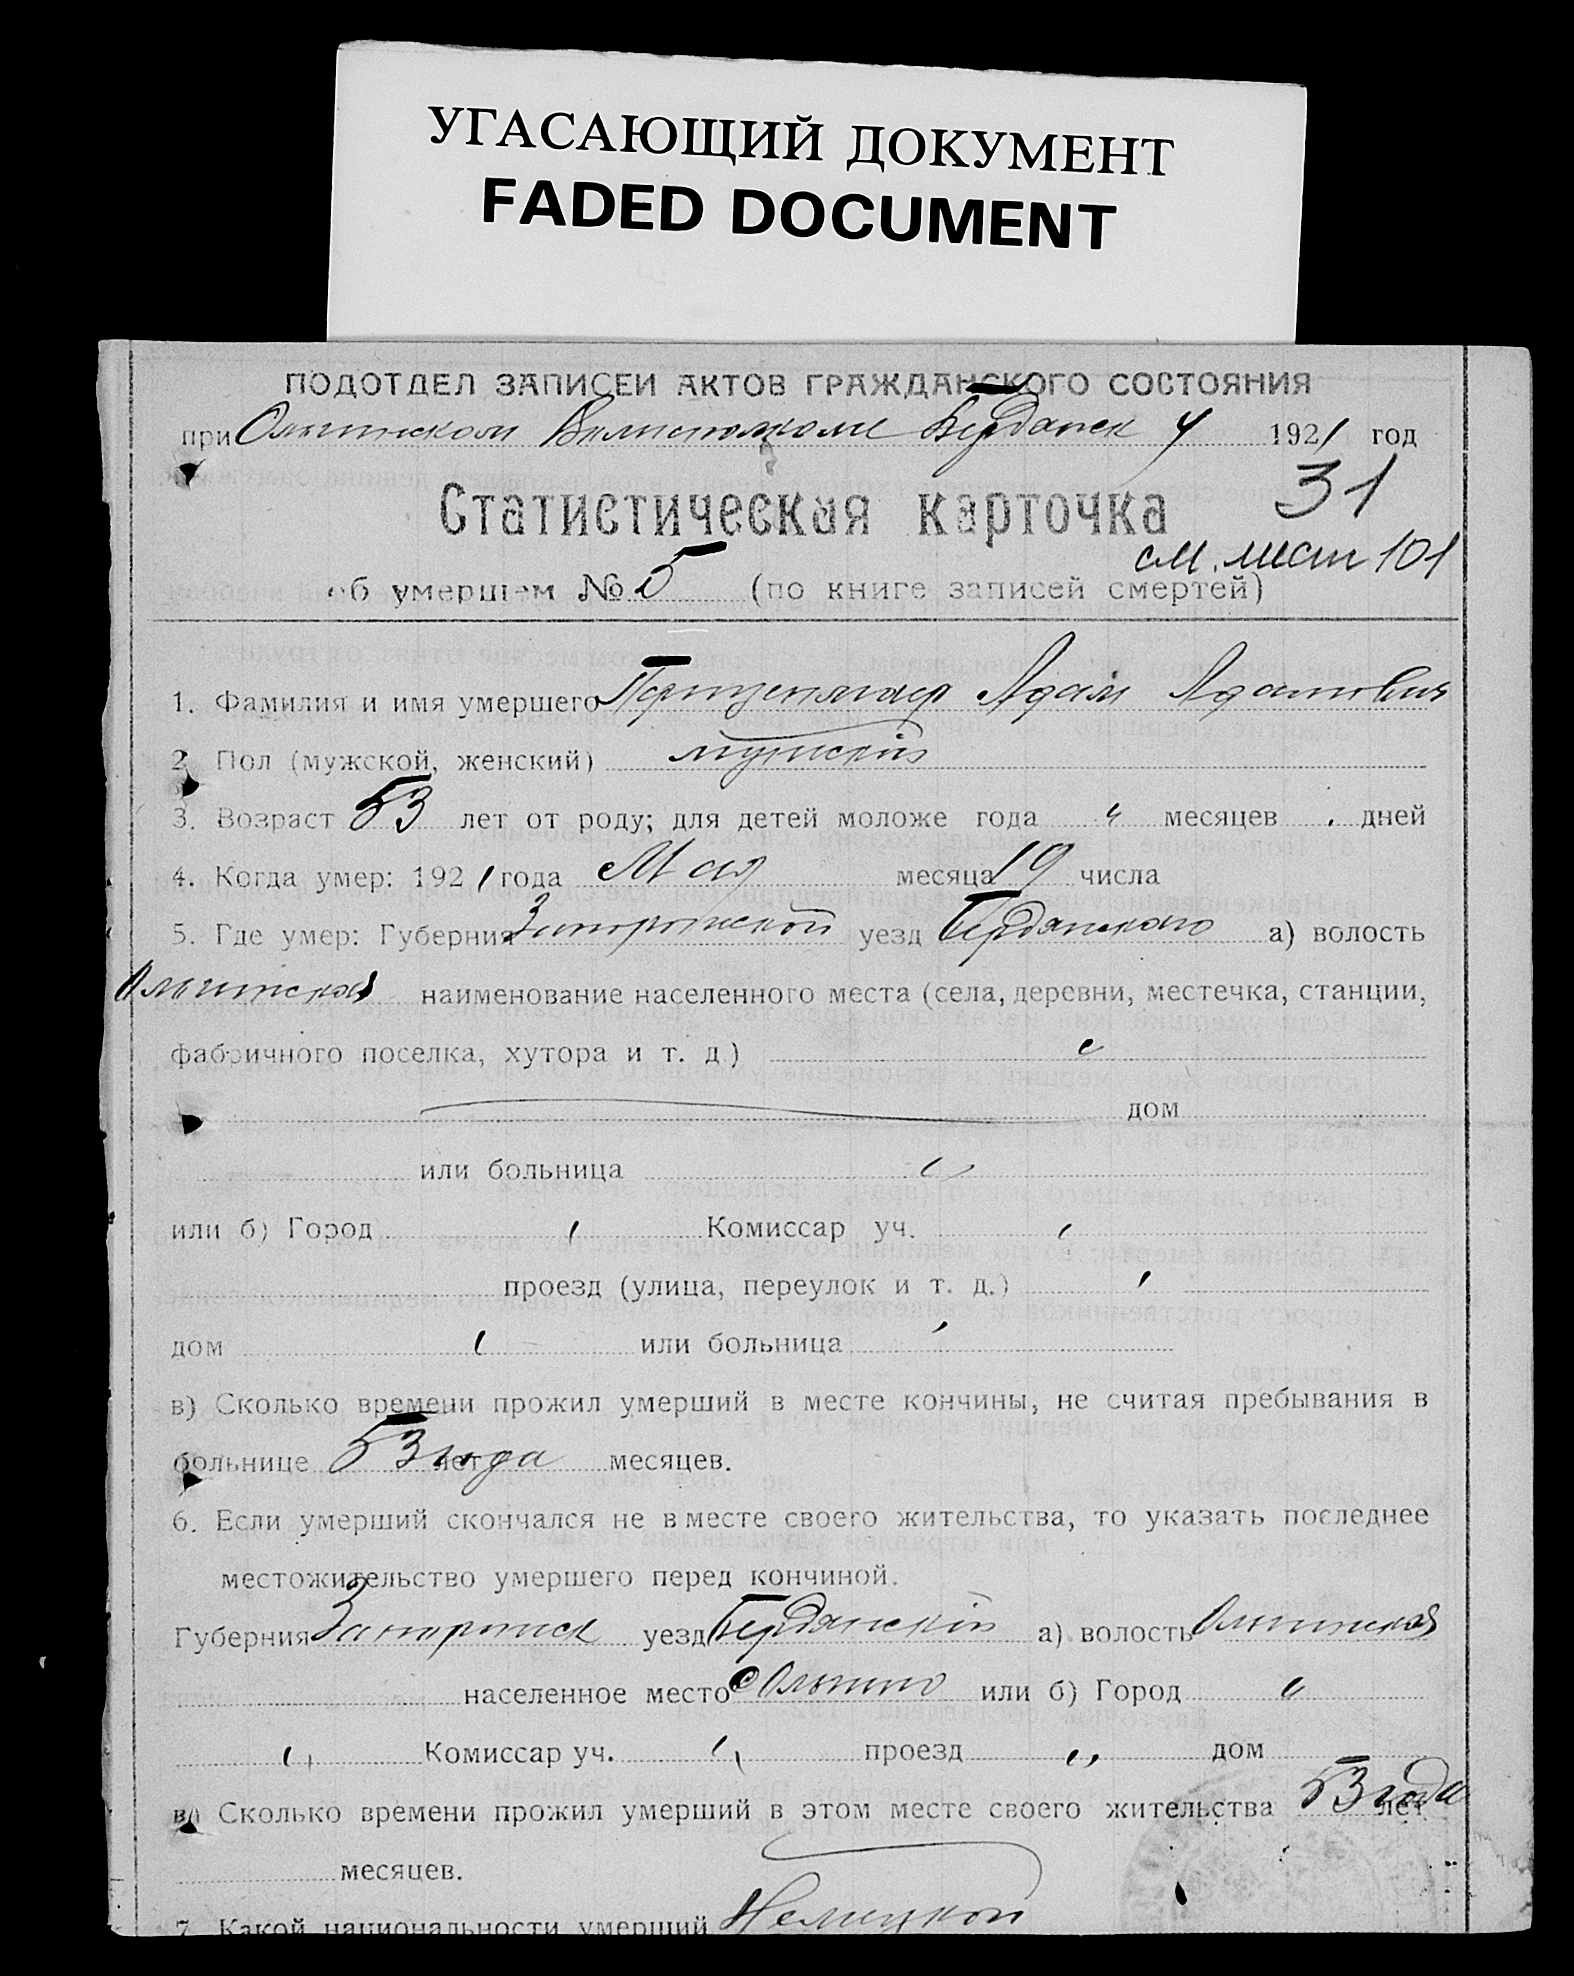 УГАСАЮЩИЙ ДОКУМЕНТ
FADED DOCUMENT
ПОДОТДЕЛ ЗАПИСЕЙ АКТОВ ГРАЖДАНСКОГО СОСТОЯНИЯ
при Ольгинском Бердянск у 1921 год
31
Статистическая карточка
см. лист 101
об умершем № 5 (по книге записей смертей)
1. Фамилия и имя умершего Адам Адамович
2. Пол (мужской, женский) мужский
3. Возраст 53 лет от роду; для детей моложе года " месяцев дней
4. Когда умер: 1921 года Мая месяца 19 числа
5. Где умер: Губерния Запорожской уезд Бердянского а) волость
Ольгинская наименование населенного места (села, деревни, местечка, станции,
фабричного поселка, хутора и т. д.)
дом
или больница "
или б) Город Комиссар уч.
проезд (улица, переулок и т. д.)
дом или больница
в) Сколько времени прожил умерший в месте кончины, не считая пребывания в
больнице 53 года лет месяцев.
6. Если умерший скончался не в месте своего жительства, то указать последнее
местожительство умершего перед кончиной.
Губерния Запорожск уезд Бердянский а) волость Ольгинская
населенное место с Ольгино или б) Город "
" Комиссар уч. " проезд " дом
в) Сколько времени прожил умерший в этом месте своего жительства 53 года лет
месяцев.
7. Какой национальности умерший Немецкой